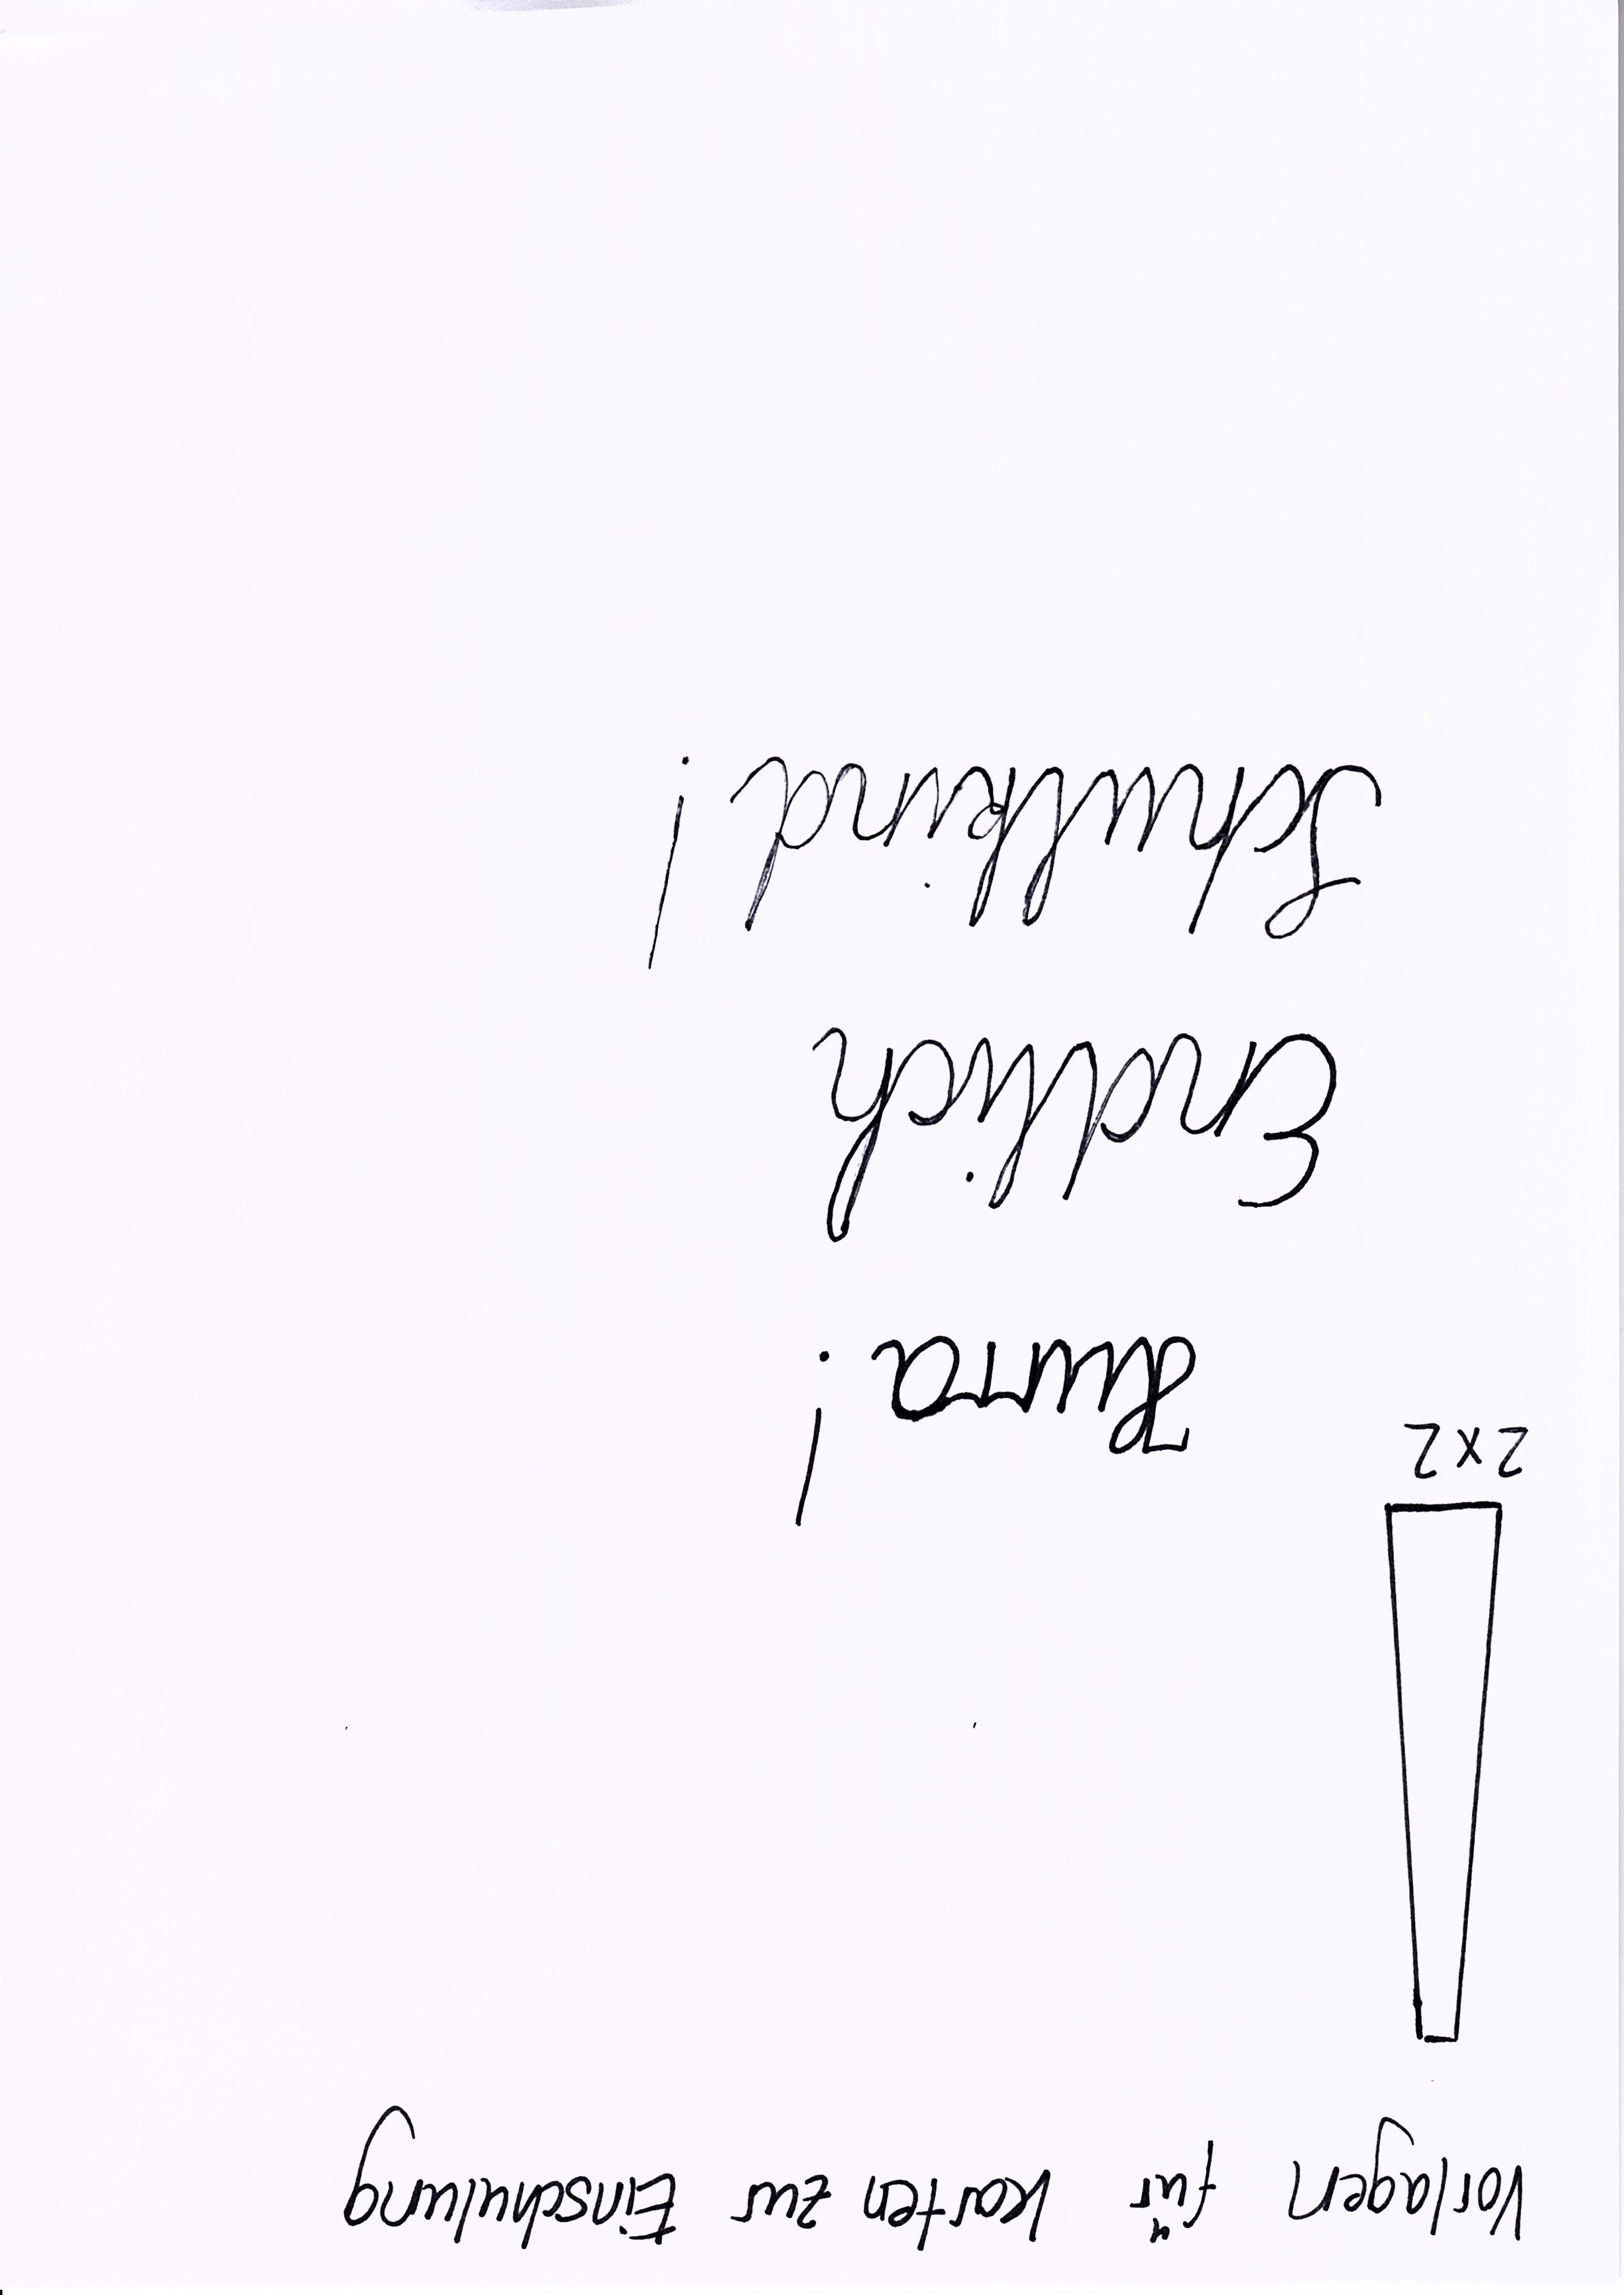 Vorlagen für Karten zur Einschulung
2x2
Hurra!
Endlich
Schulkind!